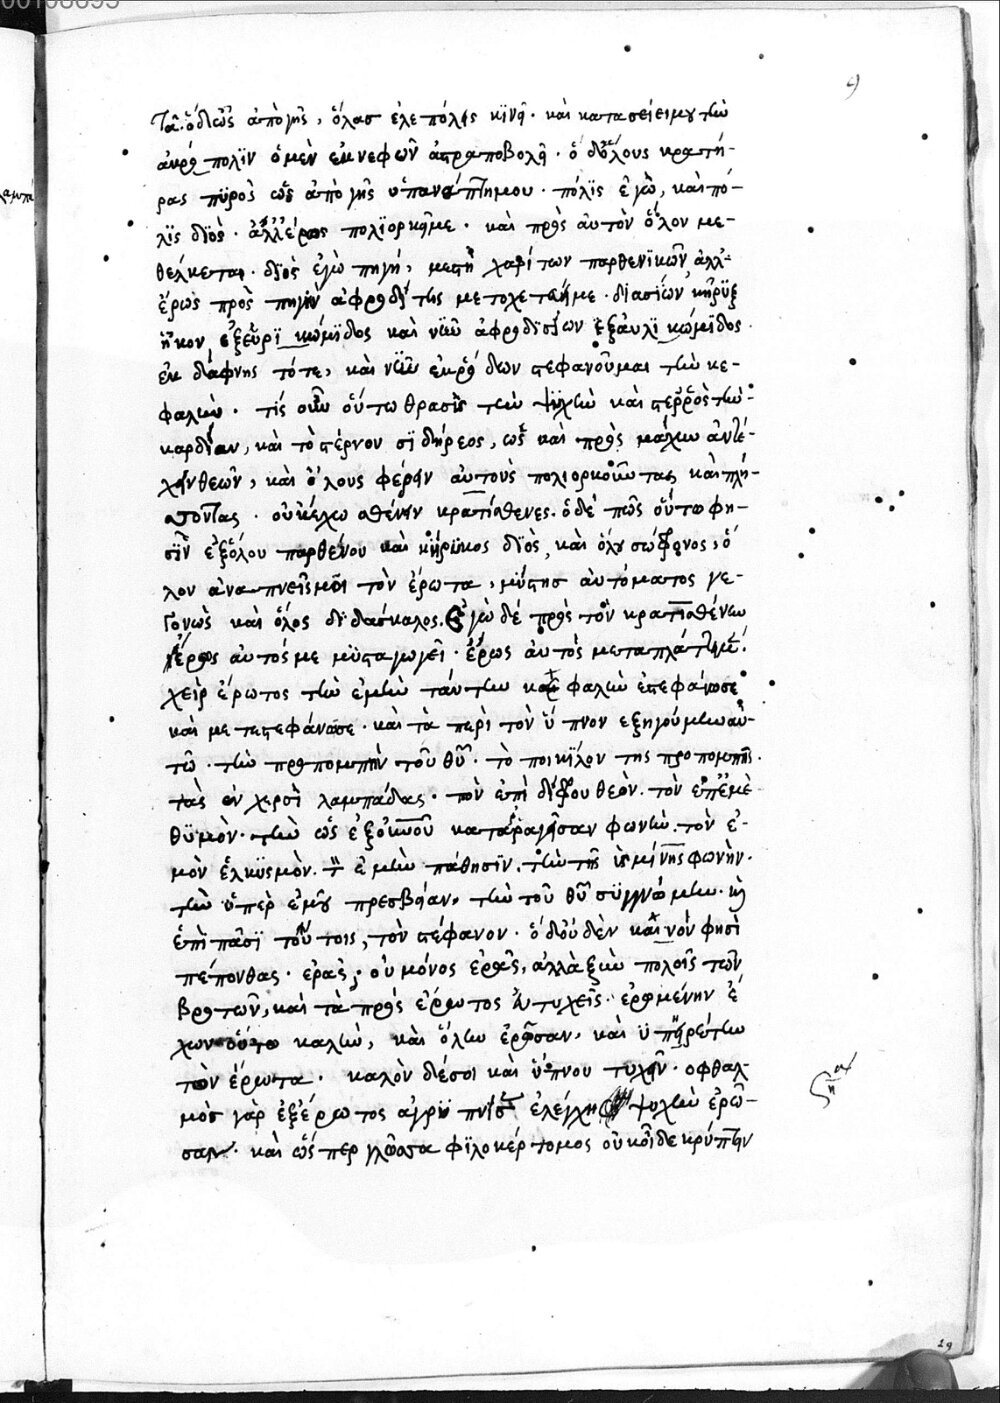 9
ται· ὁ δ' ὡς ἀπὸ γῆς, ὅλας ἑλεπόλεις κινεῖ· καὶ κατασείει μου τὴν
ἀκρόπολιν· ὁ μὲν ἐκ νεφῶν ἀστραποβολεῖ· ὁ δ' ὅλους κρατῆ-
ρας πυρὸς ὡς ἀπὸ γῆς ὑπανάπτει μου· πόλις ἐγὼ, καὶ πό-
λις διός· ἀλλ' ἔρως πολιορκεῖ με· καὶ πρὸς αὐτὸν ὅλον με-
θέλκεται· διὸς ἐγὼ πηγή, μεστὴ χαρίτων παρθενικῶν ἀλλ'
ἔρως πρὸς πηγὴν ἀφροδίτης μετοχετεύει με· διασίων κήρυξ
ἧκον ἐξ εὐρικώμιδος καὶ νῦν ἀφροδισίων ἐξ αὐλικώμιδος·
ἐκ δάφνης τότε, καὶ νῦν ἐκ ῥόδων στεφανοῦμαι τὴν κε-
φαλήν· τίς οὖν οὕτω θρασὺς τὴν ψυχὴν καὶ στερρὸς τὴν
καρδίαν, καὶ τὸ στέρνον σιδήρεος, ὡς καὶ πρὸς μάχην ἀντέ-
χειν θεῶν, καὶ ὅλους φέρειν αὐτοὺς πολιορκοῦντας καὶ πλή-
ττοντας· οὐκ ἔχω σθένειν κρατίσθενες· ὁ δέ πῶς οὕτω φη-
σὶν ἐξ ὅλου παρθένου καὶ κήρυκος διὸς, καὶ ὅλου σώφρονος, ὅ-
λον ἀναπνεῖς μοι τὸν ἔρωτα, μύστης αὐτόματος γε-
γονὼς καὶ ὅλος διδάσκαλος. Ἐγὼ δέ πρὸς τὸν κρατισθένην
ἔρως αὐτός με μυσταγωγεῖ· ἔρως αὐτὸς μεταπλάττει με·
χεὶρ ἔρωτος τὴν ἐμὴν ταύτην κεφαλὴν ἐστεφάνωσε
καὶ μετεστεφάνωσε· καὶ τὰ περὶ τὸν ὕπνον ἐξηγούμην αὐ-
τῶ· τὴν προπομπὴν τοῦ θυ· τὸ ποικίλον τῆς προπομπῆς·
τὰς ἐν χερσὶ λαμπάδας· τὸν ἐπὶ δίφρου θεόν· τὸν ἐπ' ἐμὲ
θυμὸν· τὴν ὡς ἐξ οὐνοῦ καταρραγεῖσαν φωνήν· τὸν ἐ-
μὸν ἑλκυσμὸν· τ' ἐμὴν πάθησιν· τὴν τῆς ὑσμίνης φωνὴν·
τὴν ὑπὲρ ἐμοῦ πρεσβείαν· τὴν τοῦ θυ συγγνώμην· κ
ἐπὶ πᾶσι τούτοις, τὸν στέφανον· ὁ δ' οὐδὲν καινόν φησὶ
πέπονθας· ἐρᾶς· οὐ μόνος ἐρᾶς, ἀλλὰ ξὺν πολλοῖς τῶν
βροτῶν, καὶ τὰ πρὸς ἔρωτος εὐτυχεῖς· ἐρωμένην ἔ-
χων οὕτω καλήν, καὶ ὅλην ἐρῶσαν, καὶ ὑπηρέτην
τὸν ἔρωτα· καλὸν δέ σοι καὶ ὕπνου τυχεῖν· ὀφθαλ-
μὸς γὰρ ἐξ ἔρωτος ἀγρυπνῶν ἐλέγχει ψυχὴν ἐρῶ-
σαν· καὶ ὥσπερ γλῶσσα φιλοκέρτομος οὐκ οἶδε κρύπτειν
19